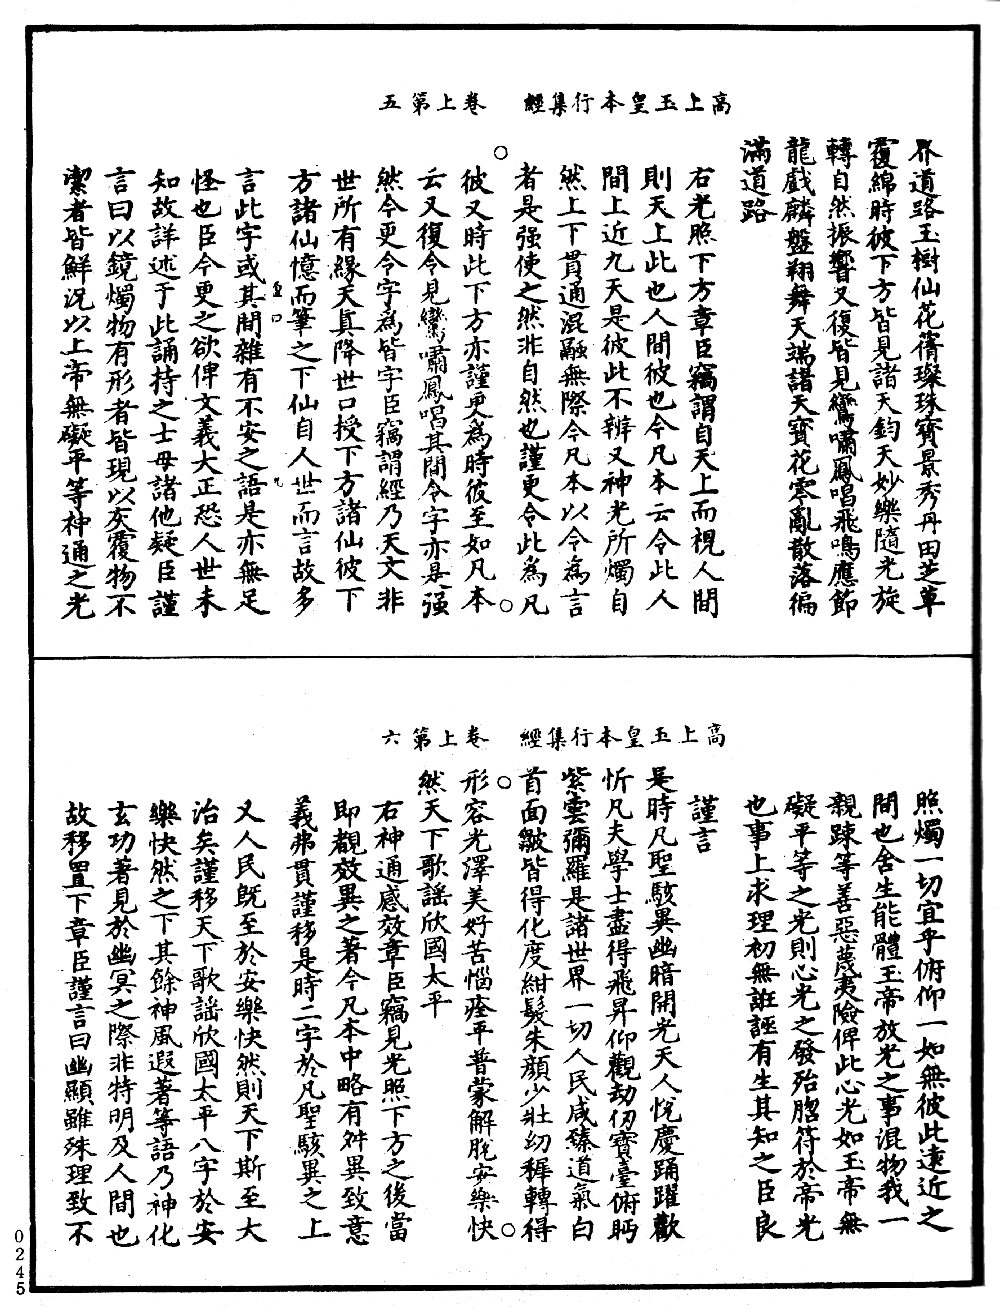 高上玉皇本行集經　卷上第五
界道路玉樹仙花蒨璨珠寶景秀丹田芝草
覆綿時彼下方皆見諸天鈞天妙樂隨光旋
轉自然振響又復皆見鸞嘯鳳唱飛鳴應節
龍戲麟盤翔舞天端諸天寶花零亂散落徧
滿道路
右光照下方章臣竊謂自天上而視人間
則天上此也人間彼也今凡本云令此人
間上近九天是彼此不辨又神光所燭自
然上下貫通混融無際今凡本以令為言
者是强使之然非自然也謹更令此為凡
彼又時此下方亦謹更為時彼至如凡本
云又復令見鸞嘯鳳唱其間令字亦是强
然今更令字為皆字臣竊謂經乃天文非
世所有緣天真降世口授下方諸仙彼下
方諸仙憶而筆之下仙自人世而言故多
言此字或其間雜有不安之語是亦無足
怪也臣今更之欲俾文義大正恐人世未
知故詳述于此誦持之士毋諸他疑臣謹
言曰以鏡燭物有形者皆現以灰覆物不
潔者皆鮮況以上帝無礙平等神通之光
高上玉皇本行集經　卷上第六
照燭一切宜乎俯仰一如無彼此遠近之
間也舍生能體玉帝放光之事混物我一
親踈等善惡蔑夷險俾此心光如玉帝無
礙平等之光則心光之發殆脗符於帝光
也事上求理初無誑誣有生其知之臣良
謹言
是時凡聖駭異幽暗開光天人悅慶踊躍歡
忻凡夫學士盡得飛昇仰觀劫仞寶臺俯眄
紫雲彌羅是諸世界一切人民咸臻道氣白
首面皺皆得化度紺髮朱顏少壯幼穉轉得
形容光澤美好苦惱痊平普蒙解脫安樂快
然天下歌謡欣國太平
右神通感效章臣竊見光照下方之後當
即覩效異之著今凡本中略有舛異致意
義弗貫謹移是時二字於凡聖駭異之上
又人民既至於安樂快然則天下斯至大
治矣謹移天下歌謡欣國太平八字於安
樂快然之下其餘神風遐著等語乃神化
玄功著見於幽冥之際非特明及人間也
故移置下章臣謹言曰幽顯雖殊理致不
0245